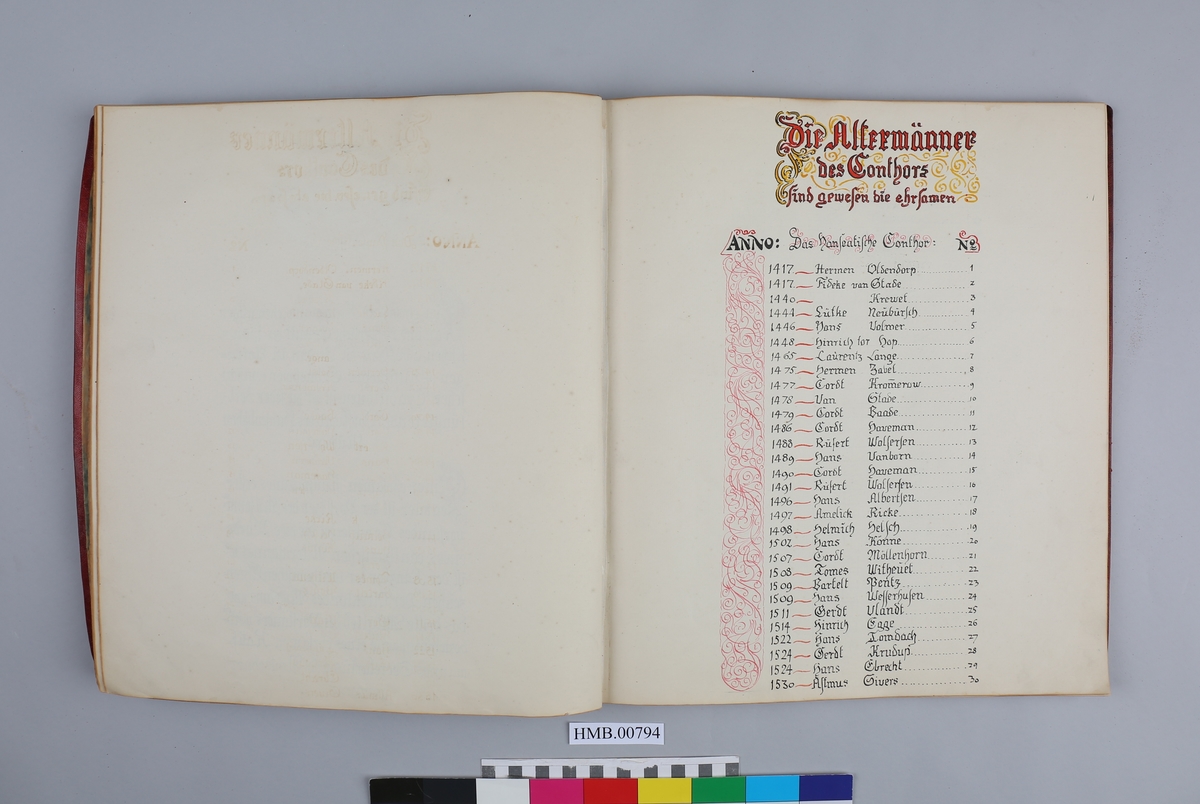 Die Altermänner
des Conthors
sind gewesen die ehrsamen
ANNO: Das Hanseatische Conthor: No
1417 — Hermen Oldendorp 1
1417 — Fideke van Stade 2
1440 — Krewet 3
1444 — Lütke Neübürsch 4
1446 — Hans Volmer 5
1448 — Hinrich tor Hop 6
1465 — Laürentz Lange 7
1475 — Hermen Zabel 8
1477 — Cordt Kromerow 9
1478 — Van Stade 10
1479 — Cordt Baade 11
1486 — Cordt Haveman 12
1488 — Rüfert Wolfersen 13
1489 — Hans Vanborn 14
1490 — Cordt Haveman 15
1491 — Rüfert Wolfersen 16
1496 — Hans Albertsen 17
1497 — Amelick Ricke 18
1498 — Helmich Helsch 19
1502 — Hans Könne 20
1507 — Cordt Möllenhorn 21
1508 — Tomes Witheüet 22
1509 — Bartelt Pentz 23
1509 — Hans Wesserhusen 24
1511 — Gerdt Vlandt 25
1514 — Hinrich Eage 26
1522 — Hans Tombach 27
1524 — Gerdt Krudup 28
1524 — Hans Ebrecht 29
1530 — Asmus Sivers 30
HMB.00794